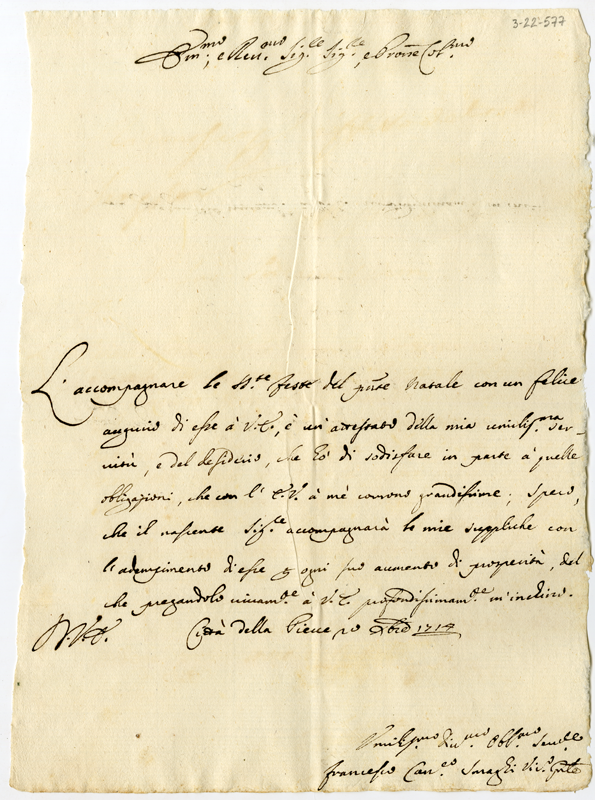 3-22-577
Em.mo, e Rev.mo Sig.re Sig.re, e Prone Col.mo
L'accompagnare le SS.te feste del pnte Natale con un felice
augurio di esse à V.E., è un'attestato della mia umiliss.ma ser-
vitù, e del desiderio, che hò di sodisfare in parte a quelle
obligazioni, che con l'E.V. à mé corrono grandissime; spero,
che il nascente Sig.re accompagnarà le mie suppliche con
l'adempimento d'esse ogni suo aumento di prosperità, del
che pregandolo vivam.te à V.E. profondissimam.te m'inchino.
Città della Pieve 20 Xbre 1714
Umiliss.mo Div.mo Obb.mo Serv.re
Francesco Can.co Vic.o Gnle